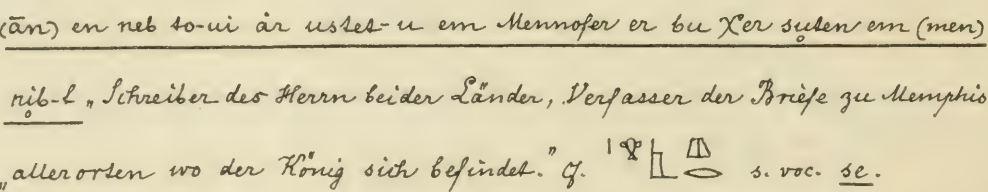 (ān) en neb to-ui ȧr ustet-u em Mennofer er bu Xer suten em (men)
nib-t „Schreiber des Herrn beider Länder, Verfasser der Briefe zu Memphis
„allerorten wo der König sich befindet." Cf. s. voc. se.